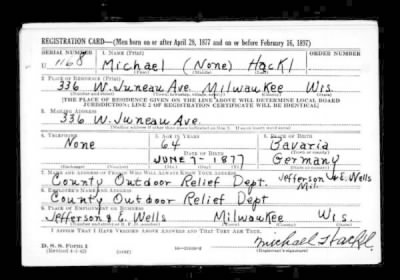 REGISTRATION CARD—(Men born on or after April 28, 1877 and on or before February 16, 1897)
SERIAL NUMBER 1. NAME (Print) ORDER NUMBER
U 1168 Michael (None) Hackl
2. PLACE OF RESIDENCE (Print)
336 W. Juneau Ave. Milwaukee Wis.
[THE PLACE OF RESIDENCE GIVEN ON THE LINE ABOVE WILL DETERMINE LOCAL BOARD
JURISDICTION; LINE 2 OF REGISTRATION CERTIFICATE WILL BE IDENTICAL]
3. MAILING ADDRESS
336 W. Juneau Ave.
[Mailing address if other than place indicated on line 2. If same insert word same]
4. TELEPHONE 5. AGE IN YEARS 6. PLACE OF BIRTH
None 64 Bavaria
DATE OF BIRTH (Town or county)
JUNE 7- 1877 Germany
(Exchange) (Number) (Mo.) (Day) (Yr.) (State or country)
7. NAME AND ADDRESS OF PERSON WHO WILL ALWAYS KNOW YOUR ADDRESS
County Outdoor Relief Dept. Jefferson & E. Wells Mil.
8. EMPLOYER'S NAME AND ADDRESS
County Outdoor Relief Dept
9. PLACE OF EMPLOYMENT OR BUSINESS
Jefferson & E. Wells Milwaukee Wis.
I AFFIRM THAT I HAVE VERIFIED ABOVE ANSWERS AND THAT THEY ARE TRUE.
D. S. S. Form 1
(Revised 4-1-42) Michael Hackl
(Registrant's signature)